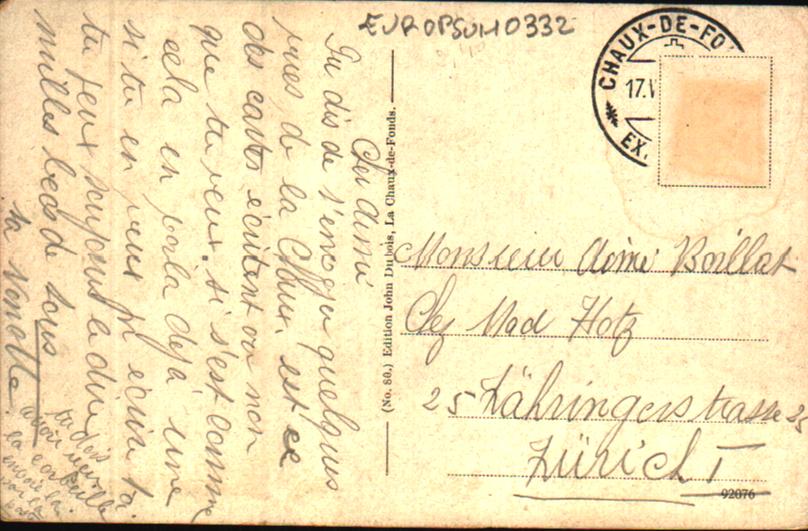 EUROPSUI10332
CHAUX-DE-FO
17.V
EX.
Cher aimé
Tu dis de t'envoyer quelques
vues de la Chaux. est ce
des cartes écritent ou non
que tu veux. si s'est comme
cela en voila deja une
si tu en veux écrire
tu peux toujours le dire
milles becs de tous
ta
tu dis
la corbeille
(No. 80.) Edition John Dubois, La Chaux-de-Fonds.
Monsieur Aimé Boillat
Chez Mad Hotz
25 Zähringerstrasse 25
Zürich I
92076